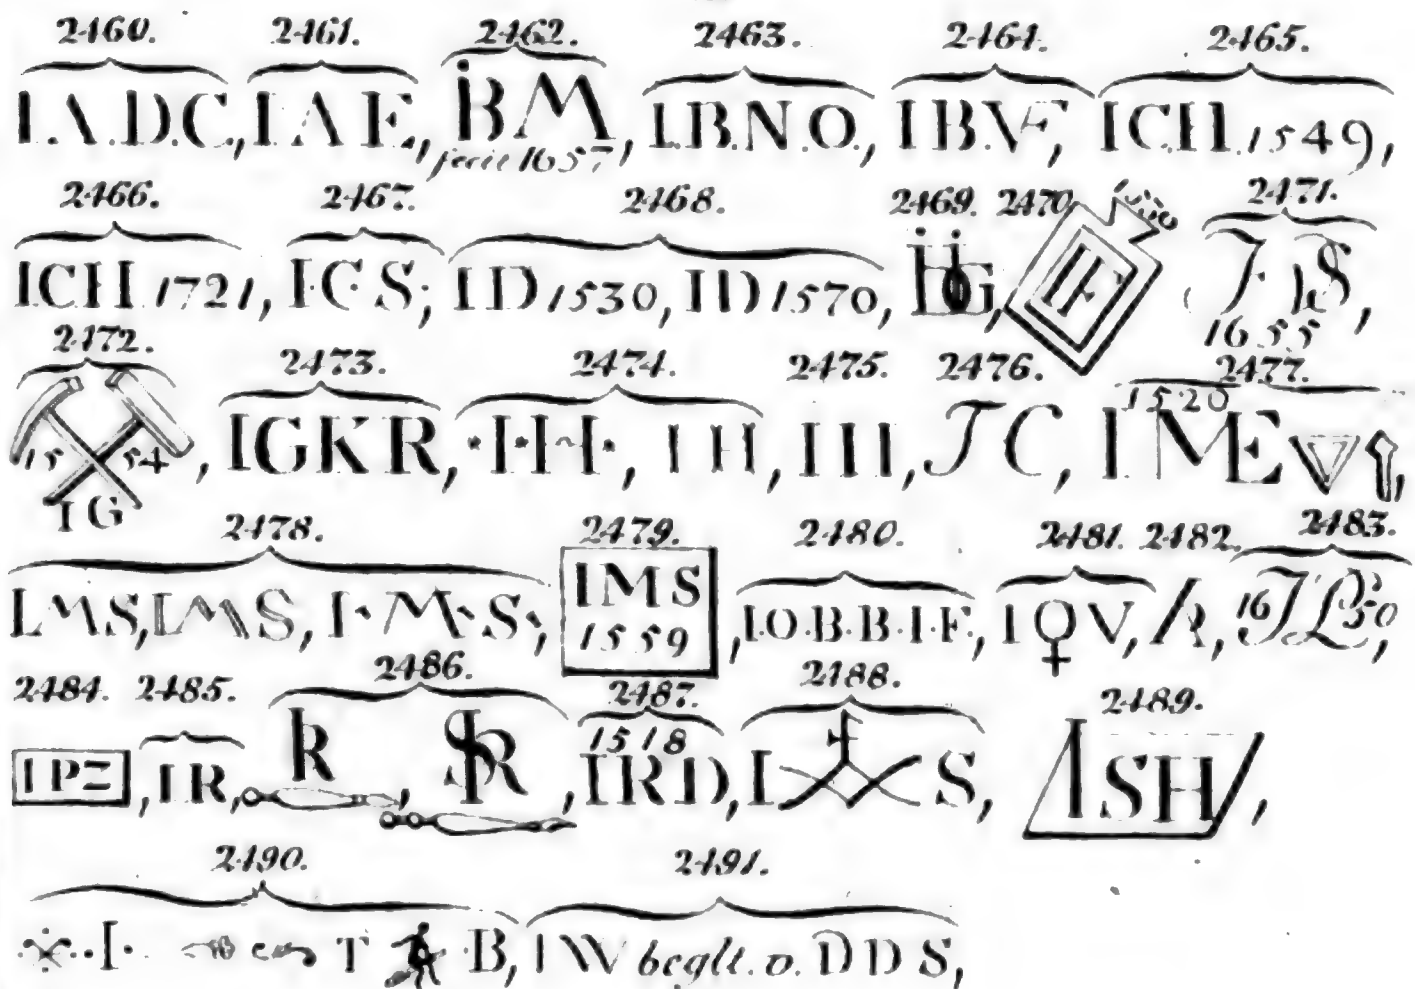 2460. 2461. 2462. 2463. 2464. 2465.
I.A.D.C., I A E, İBM, I.B.N.O., I B.V F, I C H 1549,
fecit 1657
2466. 2467. 2468. 2469. 2470. 2471.
I.C H 1721, I·C·S, I D 1530, I D 1570, HG, IF J D S,
1655
2472. 2473. 2474. 2475. 2476. 2477.
1520
15 54, IGKR, ·I·H·I·, I H, I I I, J C, I M E
I G
2478. 2479. 2480. 2481. 2482. 2483.
I M S, I M S, I·M·S·, IMS, I.O·B·B·I·F., I V, R, 16 J L 50,
1559
2484. 2485. 2486. 2487. 2488. 2489.
1518
I P Z, I R, R, SR, I R D, I S, I S H,
2490. 2491.
I· T B, I W beglt. v. D D S,